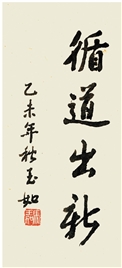 循道出新
乙未年秋玉如